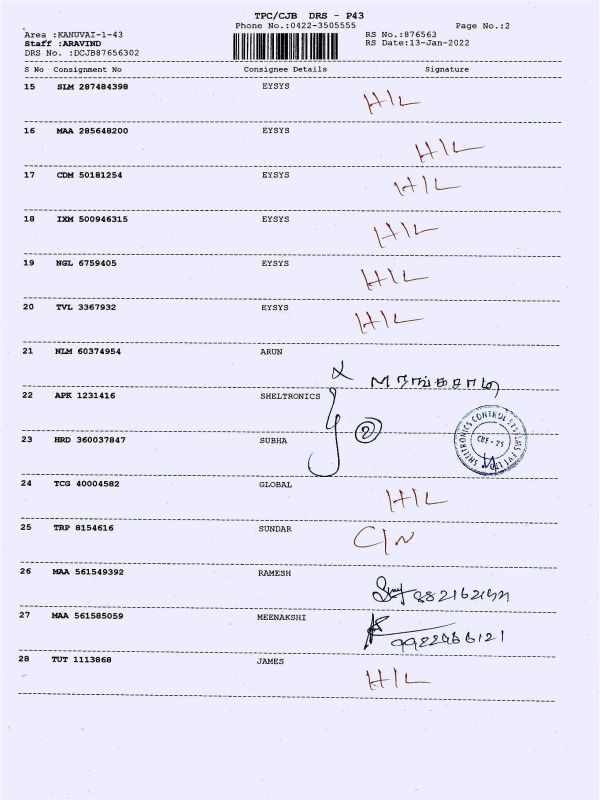 TPC/CJB DRS - P43
Phone No.:0422-3505555 Page No.:2
Area :KANUVAI-1-43 RS No.:876563
Staff :ARAVIND RS Date:13-Jan-2022
DRS No. :DCJB87656302
S No Consignment No Consignee Details Signature
15 SLM 287484398 EYSYS H/L
16 MAA 285648200 EYSYS H/L
17 CDM 50181254 EYSYS H/L
18 IXM 500946315 EYSYS H/L
19 NGL 6759405 EYSYS H/L
20 TVL 3367932 EYSYS H/L
21 NLM 60374954 ARUN
22 APK 1231416 SHELTRONICS
23 HRD 360037847 SUBHA 2
SHELTRONICS CONTROL SYSTEMS PVT LTD
CBE - 25
24 TCG 40004582 GLOBAL H/L
25 TRP 8154616 SUNDAR C/N
26 MAA 561549392 RAMESH
27 MAA 561585059 MEENAKSHI 9922966121
28 TUT 1113868 JAMES H/L